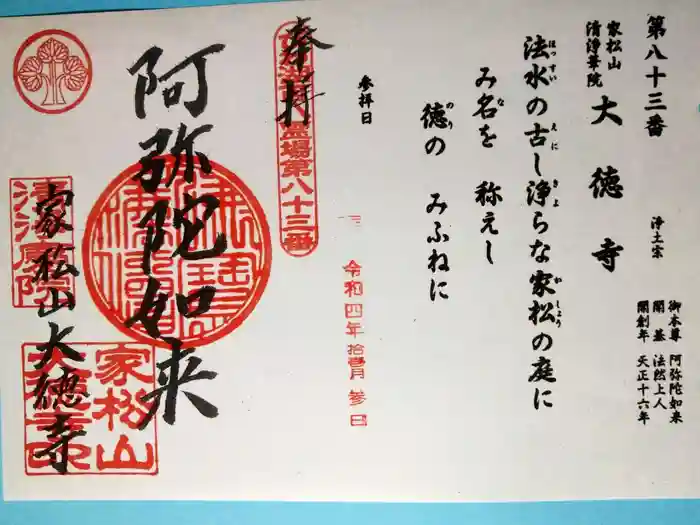 第八十三番
家松山
清浄華院
大徳寺
浄土宗
御本尊 阿弥陀如来
開基 法然上人
開創年 天正十六年
法水の古し浄らな家松の庭に
ほっすい えにし きよ かしょう
み名を 称えし
な
徳の みふねに
のり
参拝日
令和四年 拾壱月 参日
奉拝
霊場第八十三番
阿弥陀如来
家松山大徳寺
家松山